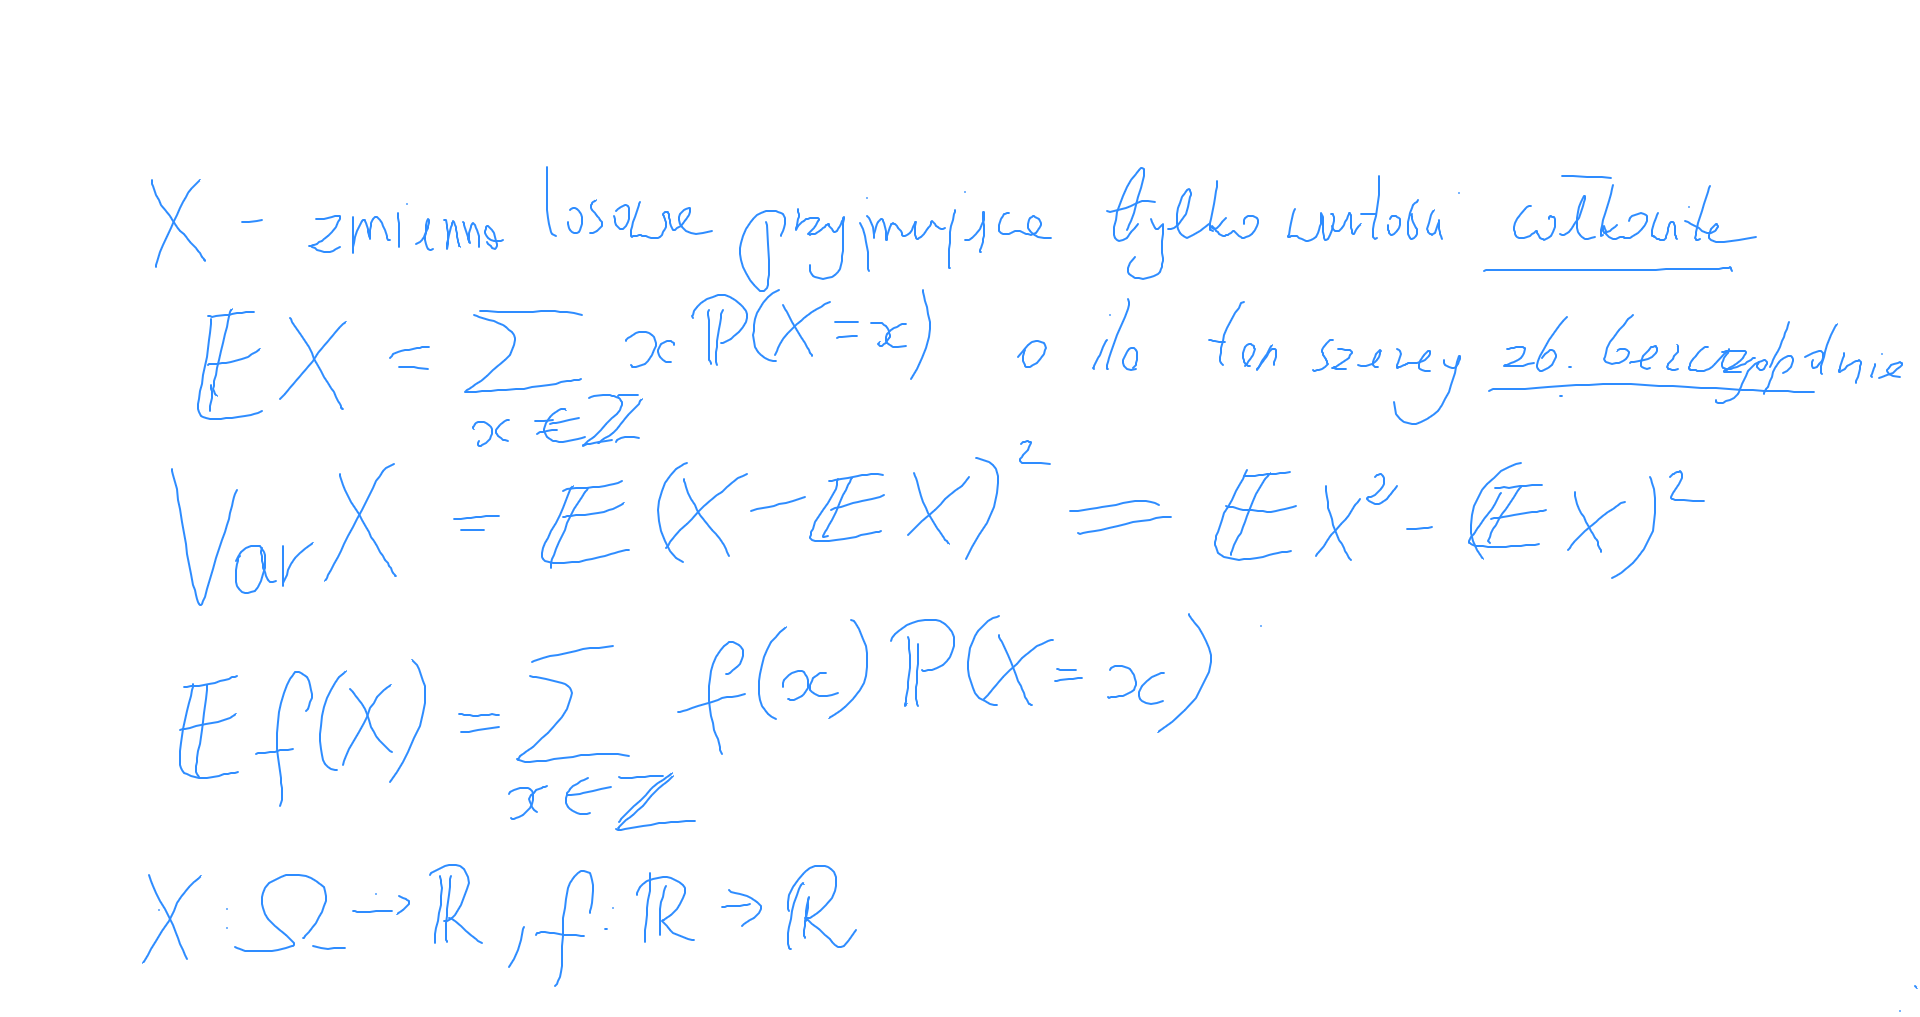 X - zmienna losowa przyjmująca tylko wartości całkowite
𝔼X = ∑_{x∈ℤ} x ℙ(X=x) o ile ten szereg zb. bezwzględnie
Var X = 𝔼(X-𝔼X)² = 𝔼X² - (𝔼X)²
𝔼f(X) = ∑_{x∈ℤ} f(x) ℙ(X=x)
X: Ω → ℝ, f: ℝ → ℝ